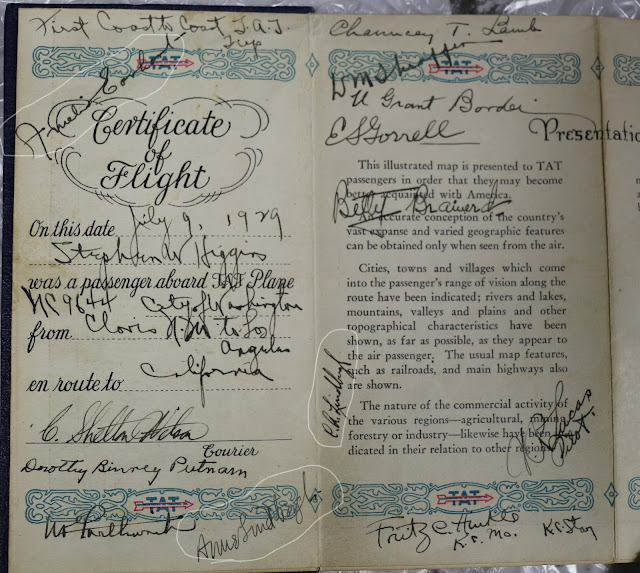 First Coast to Coast T.A.T.
Trip
TAT
Amelia Earhart
Certificate
of
Flight
On this date July 9, 1929
Stephen W Higgins
was a passenger aboard TAT Plane
NC 9644 City of Washington
from Clovis N.M to Los
Angeles
California
en route to
C.
Courier
Dorothy Binney Putnam
TAT
Anne Lindbergh
Chauncey T. Lamb
TAT
U Grant Border
E S Gorrell
This illustrated map is presented to TAT
passengers in order that they may become
better acquainted with America.
Betty Brainerd
accurate conception of the country's
vast expanse and varied geographic features
can be obtained only when seen from the air.
Cities, towns and villages which come
into the passenger's range of vision along
the route have been indicated; rivers and lakes,
mountains, valleys and plains and other
topographical characteristics have been
shown, as far as possible, as they appear to
the air passenger. The usual map features,
such as railroads, and main highways also
are shown.
C. A. Lindbergh
The nature of the commercial activity of
the various regions—agricultural, mining
forestry or industry—likewise have been
dicated in their relation to other regions
Pilot.
TAT
Fritz C.
K.C. Mo.
K.C. Star
Presentatio